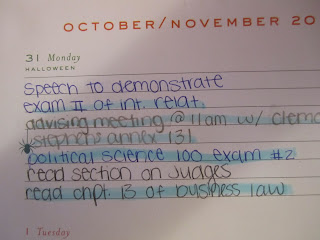 OCTOBER/NOVEMBER 20
31 Monday
HALLOWEEN
speech to demonstrate
exam II of int. relat.
advising meeting @ 11am w/ clemo
stephens annex 131
political science 100 exam #2
read section on Judges
read chpt. 13 of business law
1 Tuesday